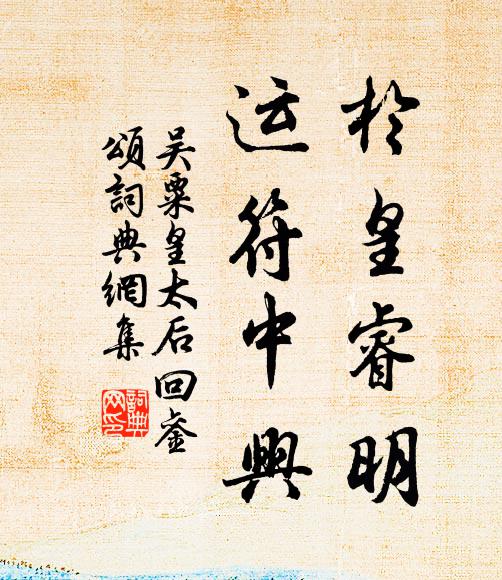 於皇睿明
运符中興
吴粟皇太后回銮
頌詞典網集
詞典
网印